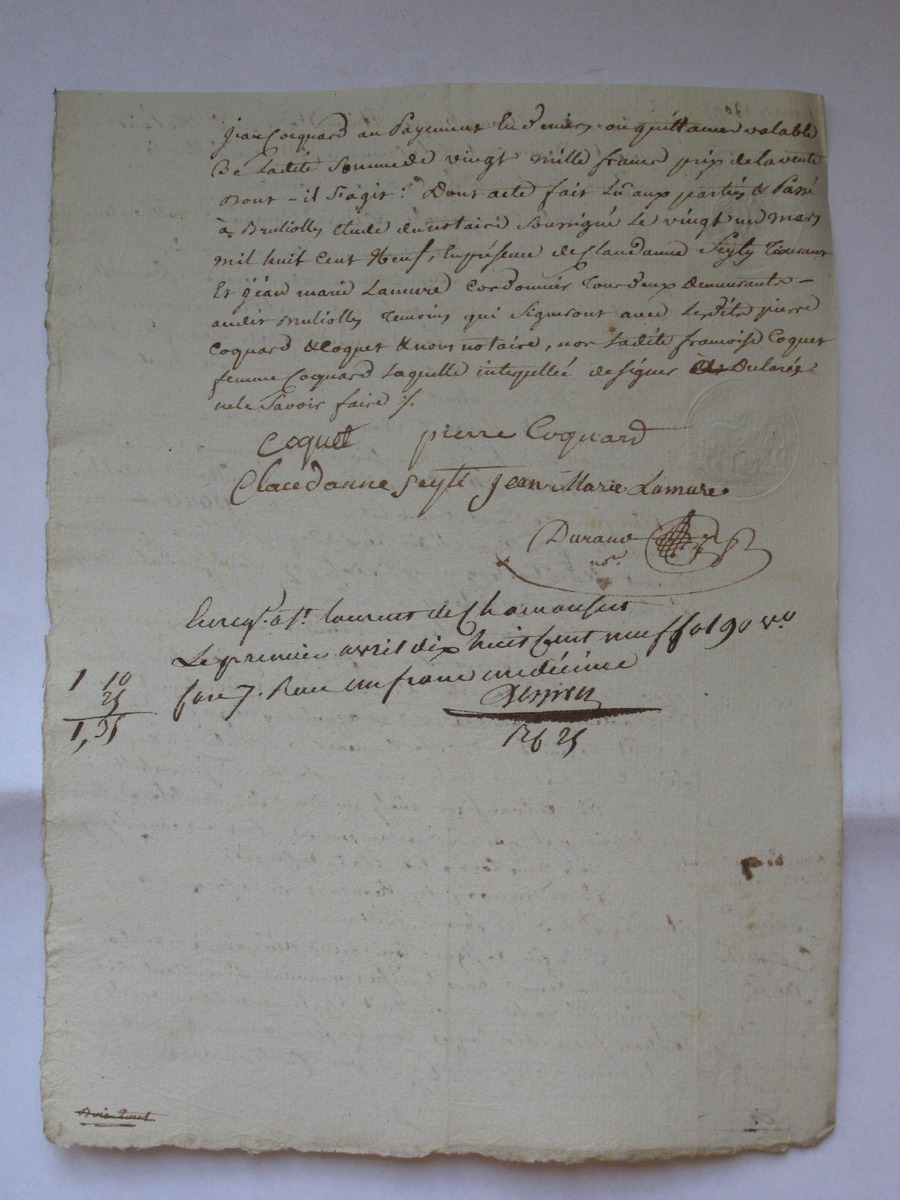 jean Cocquard au Payement En deniers ou quittance valable
De Ladite Somme de vingt mille francs prix de la vente
Dont - il S'agit : Dont acte fait Lu aux parties & Passé
à Brullolles étude du notaire Soussigné Le vingt un mars
mil huit Cent Neuf, En présence de Claudanne Seyty
Et jean marie Lamure Cordonnier Tous deux Demeurants -
audit Brullolles Temoins qui Signeront avec Lesdits pierre
Coquard & Coquet & nous notaire, non Ladite francoise Coquet
femme Cocquard Laquelle interpellée de signer a Declarée
ne le Savoir faire ./.
Coquet pierre Coquard
Claudanne Seyti Jean Marie Lamure
Durand
nore
Enregé. a St. laurent de Chamousset
Le premier avril dix huit Cent neuf fol 90 vo
1 10 Case 7. Recu un franc un décime
25
1,35
126 25